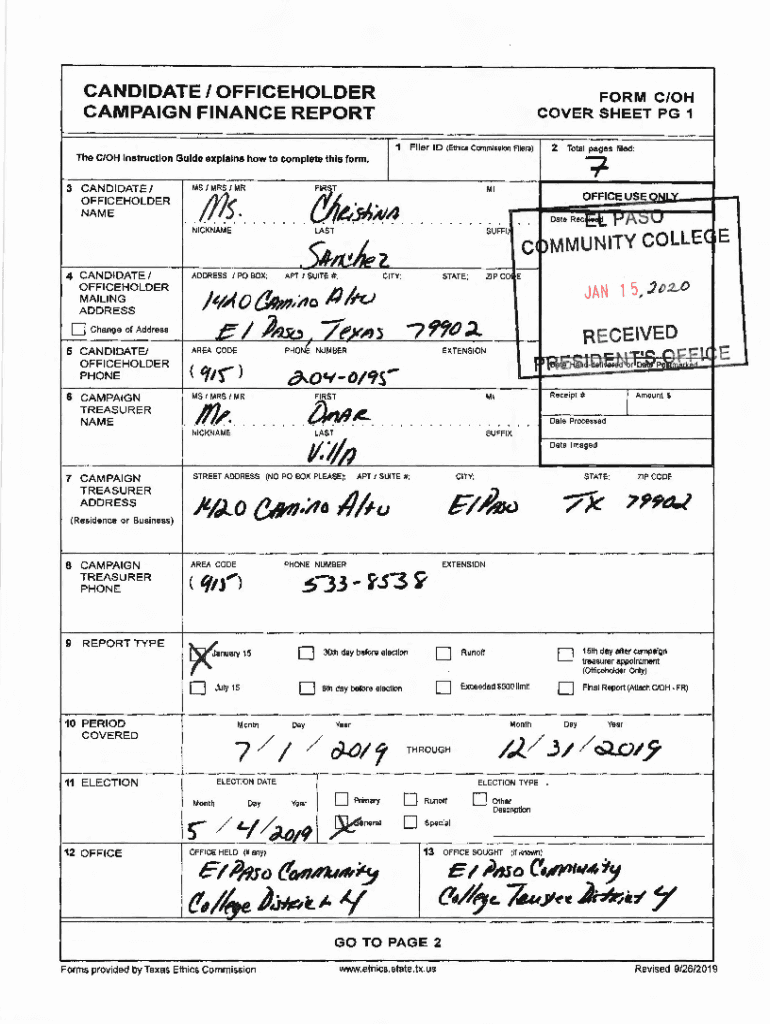 CANDIDATE / OFFICEHOLDER
CAMPAIGN FINANCE REPORT
FORM C/OH
COVER SHEET PG 1
The C/OH Instruction Guide explains how to complete this form.
1 Filer ID (Ethics Commission Filers)
2 Total pages filed:
7
3 CANDIDATE /
OFFICEHOLDER
NAME
MS / MRS / MR FIRST MI
Ms. Christina
NICKNAME LAST SUFFIX
Sanchez
OFFICE USE ONLY
Date Received
EL PASO
COMMUNITY COLLEGE
JAN 15, 2020
RECEIVED
PRESIDENT'S OFFICE
Date Hand-delivered or Date Postmarked
4 CANDIDATE /
OFFICEHOLDER
MAILING
ADDRESS
Change of Address
ADDRESS / PO BOX; APT / SUITE #; CITY; STATE; ZIP CODE
1420 Camino Alto
El Paso, Texas 79902
5 CANDIDATE/
OFFICEHOLDER
PHONE
AREA CODE PHONE NUMBER EXTENSION
(915) 204-0195
6 CAMPAIGN
TREASURER
NAME
MS / MRS / MR FIRST MI
Mr. Omar
NICKNAME LAST SUFFIX
Villa
Receipt # Amount $
Date Processed
Date Imaged
7 CAMPAIGN
TREASURER
ADDRESS
(Residence or Business)
STREET ADDRESS (NO PO BOX PLEASE); APT / SUITE #; CITY; STATE; ZIP CODE
1420 Camino Alto El Paso TX 79902
8 CAMPAIGN
TREASURER
PHONE
AREA CODE PHONE NUMBER EXTENSION
(915) 533-8538
9 REPORT TYPE
January 15 30th day before election Runoff 15th day after campaign
treasurer appointment
(Officeholder Only)
July 15 8th day before election Exceeded $500 limit Final Report (Attach C/OH - FR)
10 PERIOD
COVERED
Month Day Year Month Day Year
7 / 1 / 2019 THROUGH 12/ 31 / 2019
11 ELECTION
ELECTION DATE ELECTION TYPE
Month Day Year Primary Runoff Other
Description
5 / 4 / 2019 General Special
12 OFFICE
OFFICE HELD (if any)
El Paso Community
College District 4
13 OFFICE SOUGHT (if known)
El Paso Community
College Trustee District 4
GO TO PAGE 2
Forms provided by Texas Ethics Commission www.ethics.state.tx.us Revised 9/26/2019